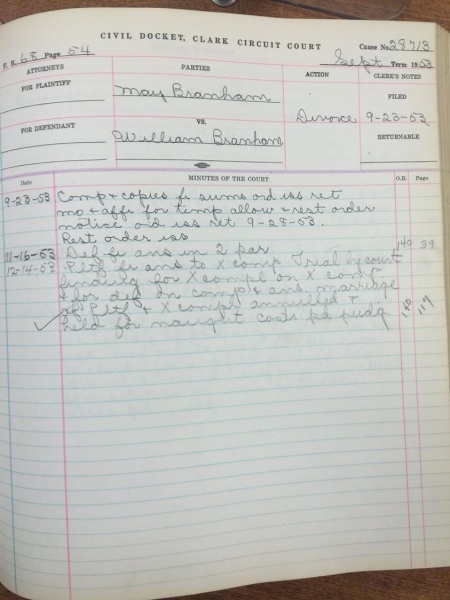 CIVIL DOCKET, CLARK CIRCUIT COURT
F. B. 68 Page 54
Cause No. 28713
Sept Term 1953
ATTORNEYS
PARTIES
ACTION
CLERK'S NOTES
FOR PLAINTIFF
May Branham
FILED
VS.
Divorce 9-23-53
FOR DEFENDANT
William Branham
RETURNABLE
Date
MINUTES OF THE COURT
O.B. Page
9-23-53 Comp + copies fi sums ord iss ret
mo + affi for temp allow + rest order
notice ord iss ret 9-28-53.
Rest order iss
11-16-53 Def fi ans in 2 par 140 39
12-14-53 Pltf fi ans to X comp Trial by court
finding for X compl on X comp
+ for def on comp + ans. marriage
of Pltf + X compt annulled +
held for naught costs pd judg 140 117